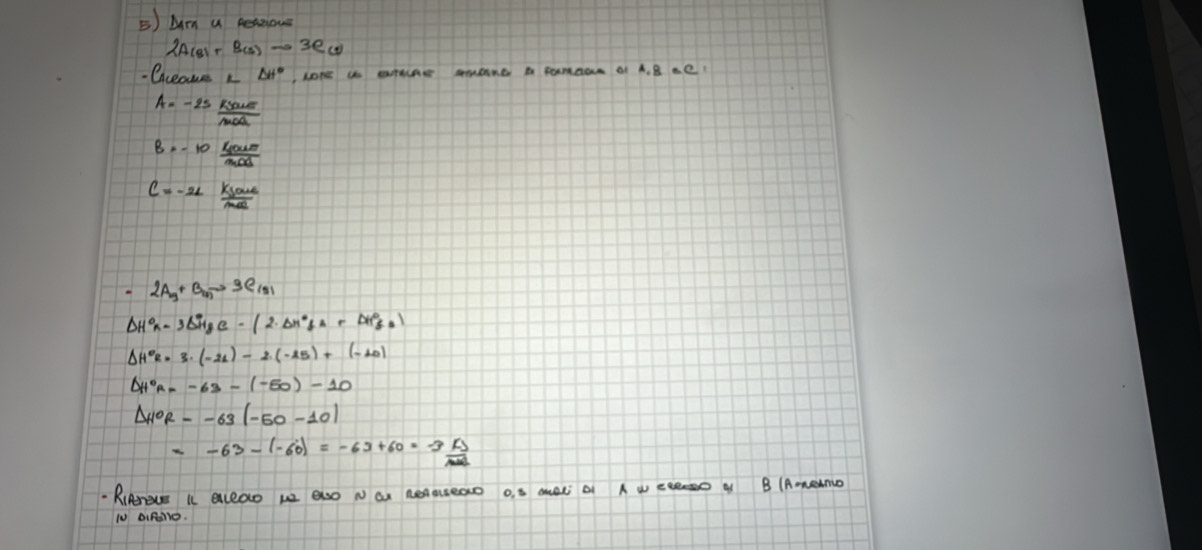 5) DATA LA REAZIONE
2A(g) + B(s) → 3C(g)
- CALCOLARE IL ΔH°, NOTE LE ENTALPIE STANDARD DI FORMAZIONE DI A, B e C:
A = -25 KJOULE/MOL
B = -10 KJOULE/MOL
C = -21 KJOULE/MOL
- 2Ag + B(s) → 3C(g)
ΔH°R = 3ΔH°f C - (2·ΔH°f A + ΔH°f B)
ΔH°R = 3·(-21) - 2·(-25) + (-10)
ΔH°R = -63 - (-50) - 10
ΔH°R = -63 (-50 - 10)
= -63 - (-60) = -63 + 60 = -3 KJ/MOL
- RIPETERE IL CALCOLO NEL CASO IN CUI REAGISCANO 0,5 MOLI DI A IN ECCESSO DI B (A
IN DIFETTO.